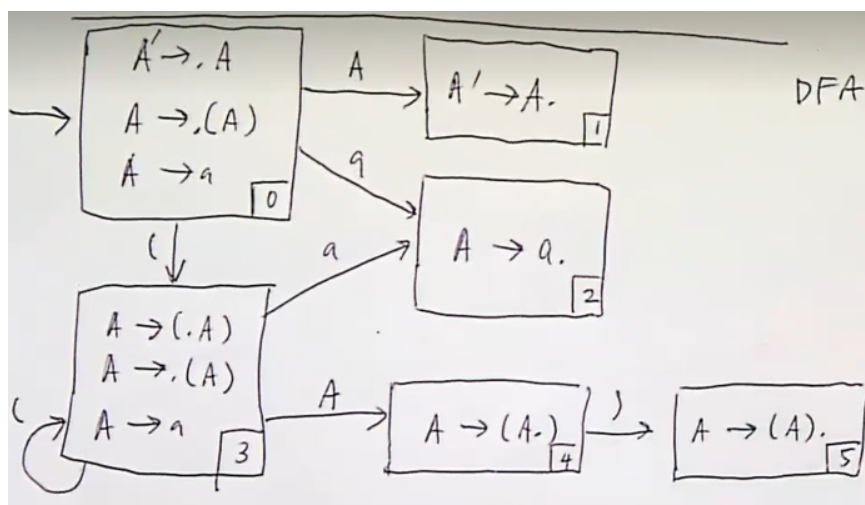 A' → . A
A → . (A)
A → a
0
A
A' → A.
1
DFA
a
A → a.
2
(
a
A → (.A)
A → .(A)
A → a
3
(
A
A → (A.)
4
)
A → (A).
5